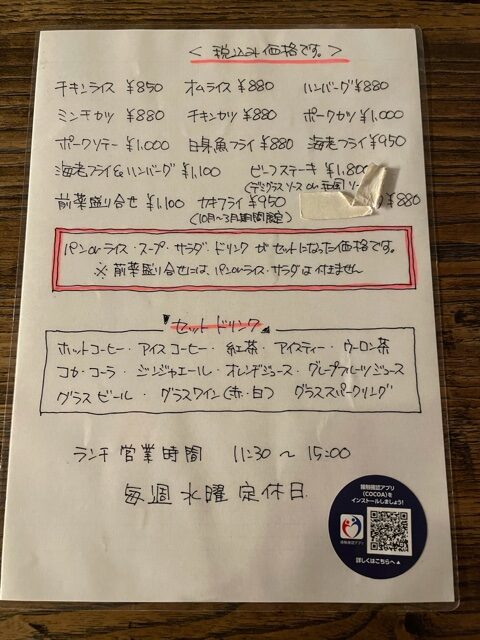 < 税込み価格です。>
チキンライス ¥850 オムライス ¥880 ハンバーグ ¥880
ミンチカツ ¥880 チキンカツ ¥880 ポークカツ ¥1,000
ポークソテー ¥1,000 白身魚フライ ¥880 海老フライ ¥950
海老フライ&ハンバーグ ¥1,100 ビーフステーキ ¥1,800
(デミグラスソース or
前菜盛り合せ ¥1,100 カキフライ ¥950 ¥880
(10月〜3月期間限定)
パンorライス・スープ・サラダ・ドリンク がセットになった価格です。
※ 前菜盛り合せには、パンorライス・サラダは付きません
『セットドリンク』
ホットコーヒー・アイスコーヒー・紅茶・アイスティー・ウーロン茶
コカ・コーラ・ジンジャエール・オレンジジュース・グレープフルーツジュース
グラスビール・グラスワイン(赤・白) グラススパークリング
ランチ営業時間 11:30 〜 15:00
毎週水曜定休日
接触確認アプリ
(COCOA)を
インストールしましょう!
接触確認アプリ
詳しくはこちらへ▲